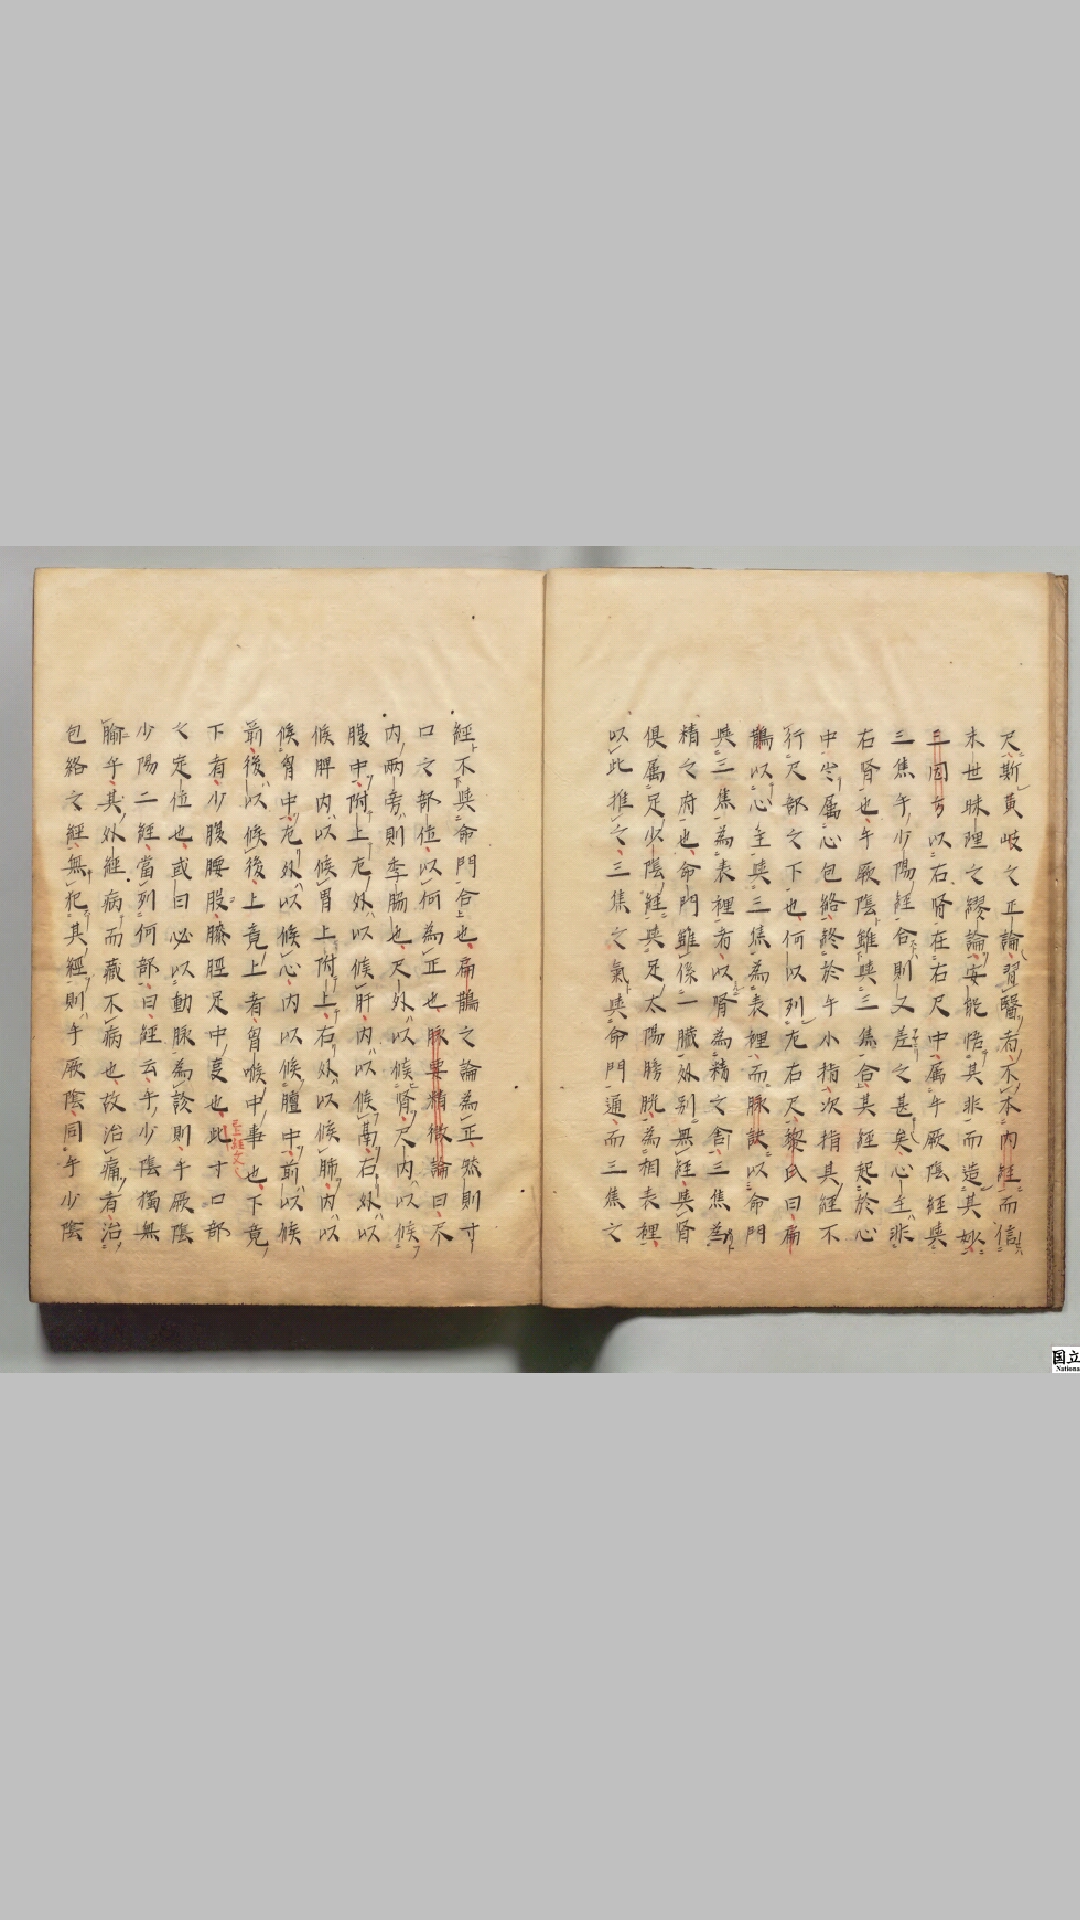 尺斯黄岐之正論習醫者不本内経而信
末世昧理之繆論安能悟其非而造其妙
三因方以右腎在右尺中属手厥陰経與
三焦手少陽経合則又差之甚矣心主非
右腎也手厥陰雖與三焦合其経起於心
中出属心包絡終於手小指次指其経不
行尺部之下也何以列左右尺黎氏曰扁
鵲以心主與三焦為表裡而脉訣以命門
與三焦為表裡者以腎為精之舎三焦為
精之府也命門雖係一臓外別無経與腎
倶属足少陰経與足太陽膀胱為相表裡
以此推之三焦之氣與命門通而三焦之
經不與命門合也扁鵲之論為正然則寸
口之部位以何為正也脉要精微論曰尺
内兩旁則季脇也尺外以候腎尺内以候
腹中附上左外以候肝内以候鬲右外以
候脾内以候胃上附上右外以候肺内以
候胷中左外以候心内以候膻中前以候
前後以候後上竟上者胷喉中事也下竟
下者少腹腰股膝脛足中事也此寸口部
之定位也或曰必以動脉為診則手厥陰
少陽二經當列何部曰經云手少陰獨無
腧乎其外經病而藏不病也故治病者治
包絡之經無犯其經則手厥陰同手少陰
国立
Nationa